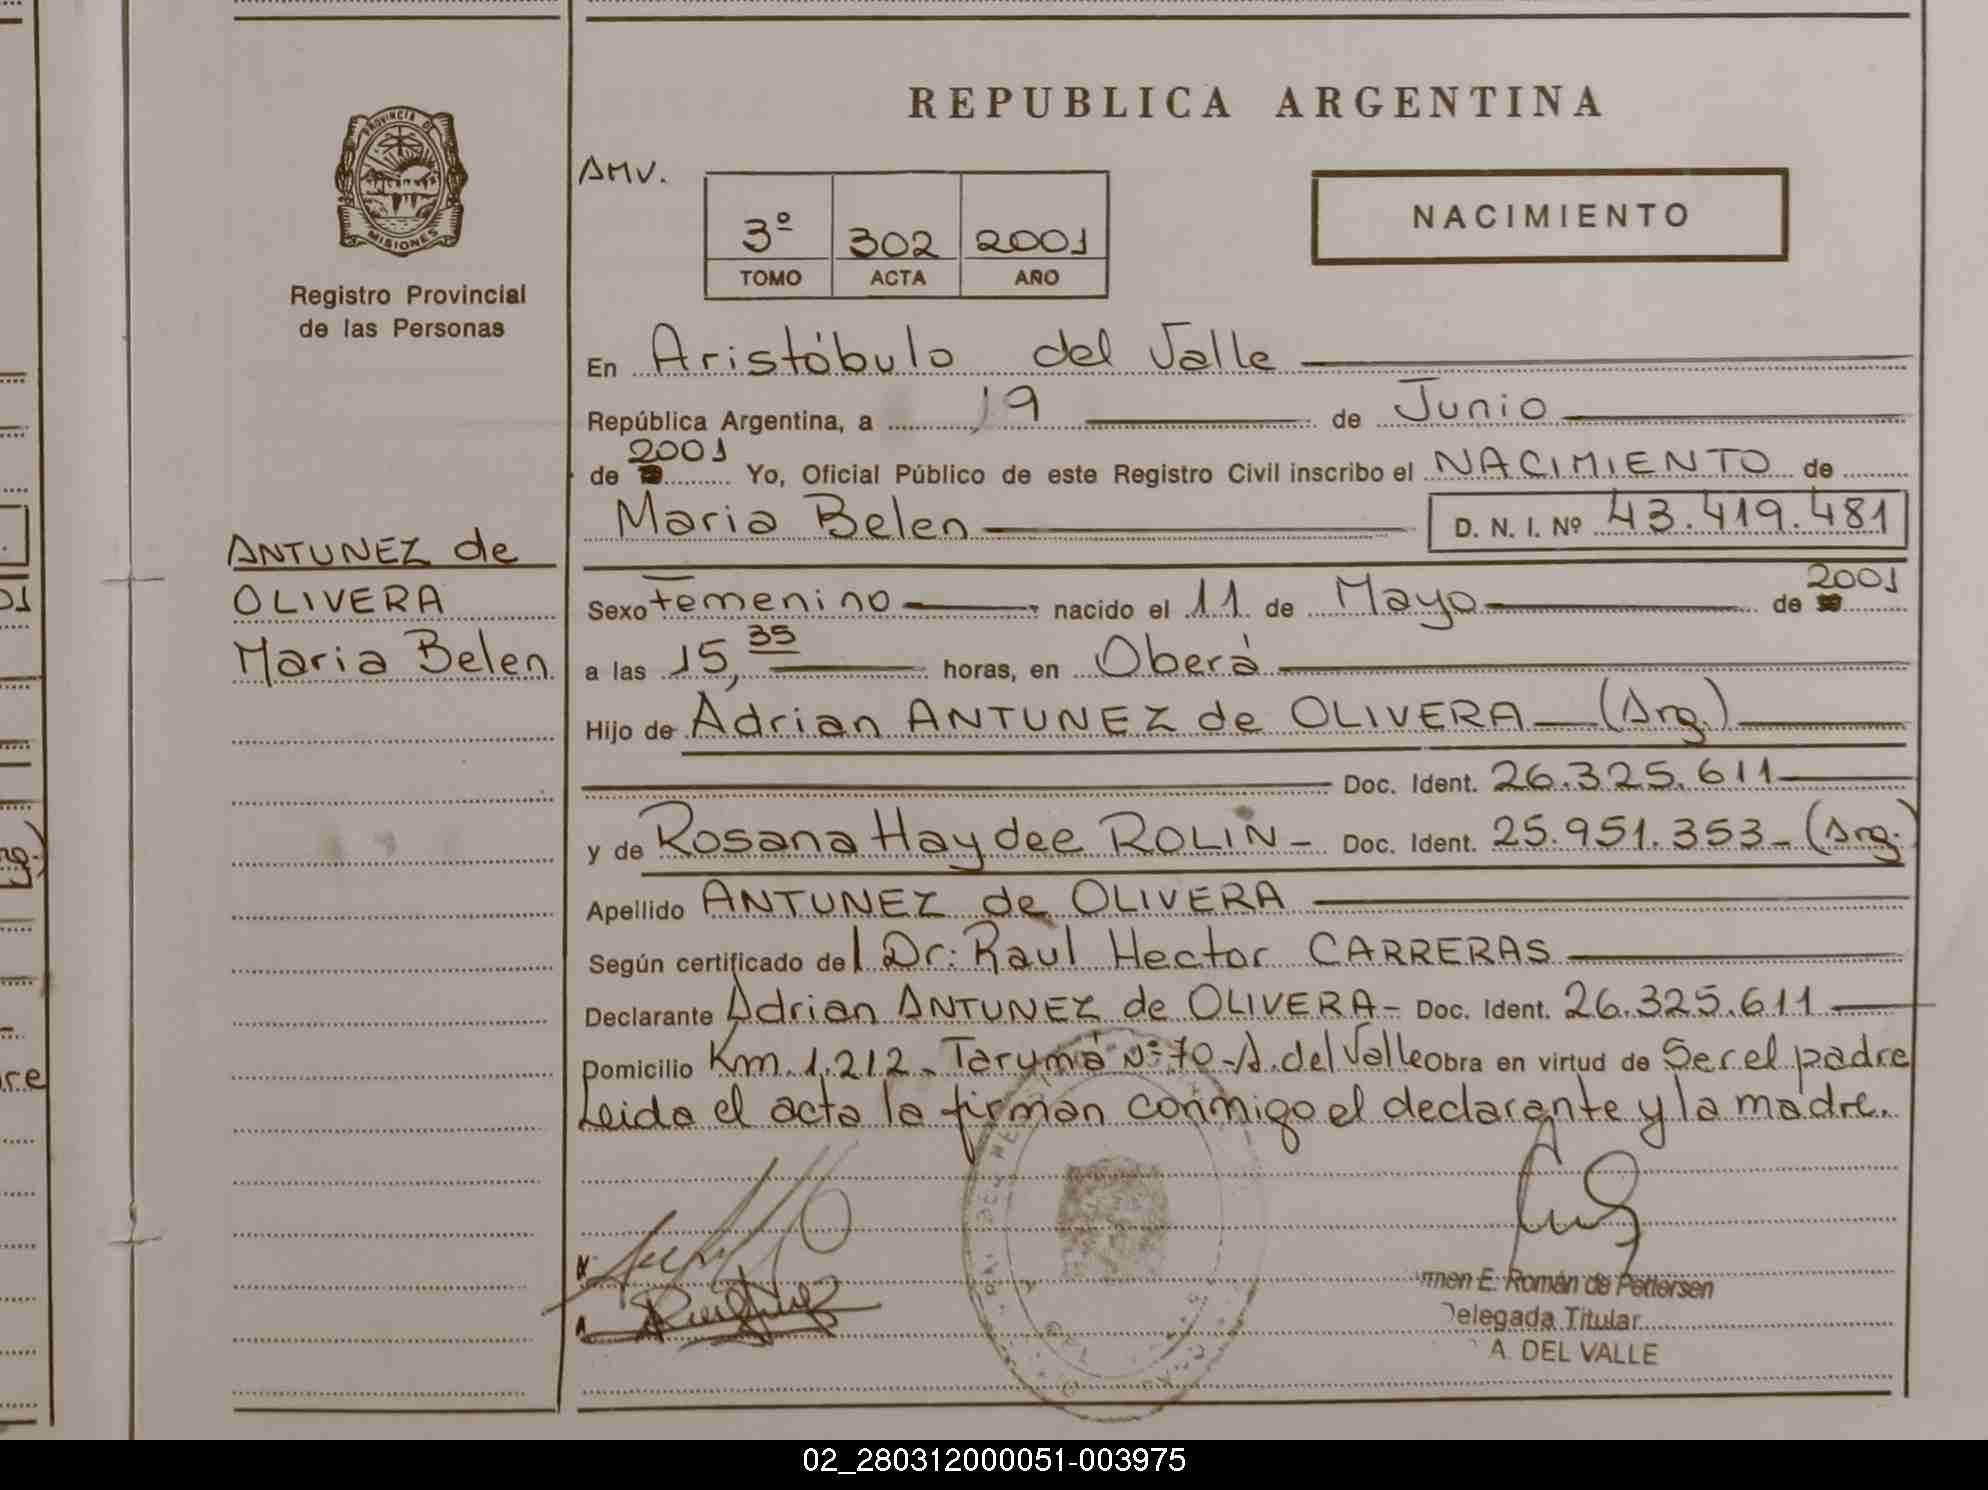 REPUBLICA ARGENTINA
PROVINCIA DE
MISIONES
Registro Provincial
de las Personas
AMV.
3º 302 2001
TOMO ACTA AÑO
NACIMIENTO
En Aristóbulo del Valle
República Argentina, a 19 de Junio
de 2001 Yo, Oficial Público de este Registro Civil inscribo el NACIMIENTO de
Maria Belen D. N. I. Nº 43.419.481
ANTUNEZ de
OLIVERA
Maria Belen
Sexo Femenino nacido el 11 de Mayo de 2001
a las 15,35 horas, en Oberá
Hijo de Adrian ANTUNEZ de OLIVERA (Arg.)
Doc. Ident. 26.325.611
y de Rosana Haydee ROLIN - Doc. Ident. 25.951.353 - (Arg.)
Apellido ANTUNEZ de OLIVERA
Según certificado del Dr: Raul Hector CARRERAS
Declarante Adrian ANTUNEZ de OLIVERA - Doc. Ident. 26.325.611
Domicilio Km. 1.212 - Tarumá Nº 70 - A. del Valle obra en virtud de Ser el padre
Leida el acta la firman conmigo el declarante y la madre.
E. Román de Pettersen
Titular
A. DEL VALLE
02_280312000051-003975